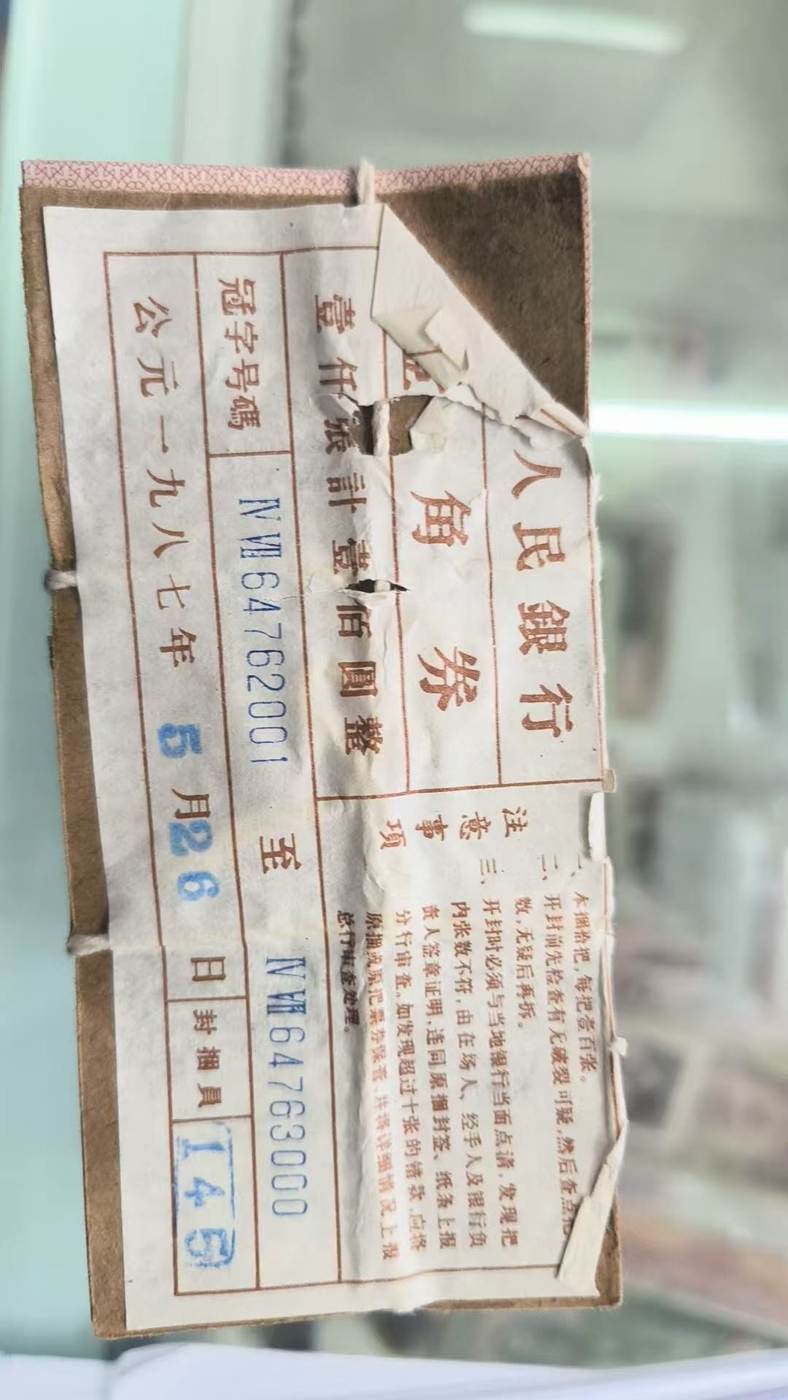 人民銀行
角券
壹仟張計壹佰圓整
冠字号碼 ⅣⅦ64762001 至 ⅣⅦ64763000
公元一九八七年 5月26日 封捆員 145
注意事项
一、本捆拾把,每把壹百张。
二、开封前先检查有无破裂可疑,然后查点把
数,无疑后再拆。
三、开封时必须与当地银行当面点清,发现把
内张数不符,由在场人、经手人及银行负
责人签章证明,连同原捆封签、纸条上报
分行审查。如发现超过十张的错款,应将
原捆或原把票券保管,并将详细情况上报
总行审查处理。